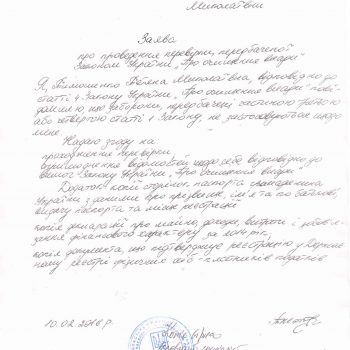 Миколаївни
Заява
про проведення перевірки, передбаченої
Законом України „Про очищення влади"
Я, Тимошенко Тетяна Миколаївна, відповідно до
статті 4 Закону України „Про очищення влади" пові-
домляю що заборони, передбачені частиною третьою
або четвертою статті 1 Закону, не застосовуються щодо
мене.
Надаю згоду на:
проходження перевірки,
оприлюднення відомостей щодо себе відповідно до
вимог Закону України „Про очищення влади"
Додаток: копії сторінок паспорта громадянина
України з даними про прізвище, ім'я та по батькові,
видачу паспорта та місце реєстрації
копія декларації про майно, доходи, витрати і зобов'я-
зання фінансового характеру за 2014 рік,
копія документа, що підтверджує реєстрацію у Держав-
ному реєстрі фізичних осіб-платників податків
10.02.2016 р.